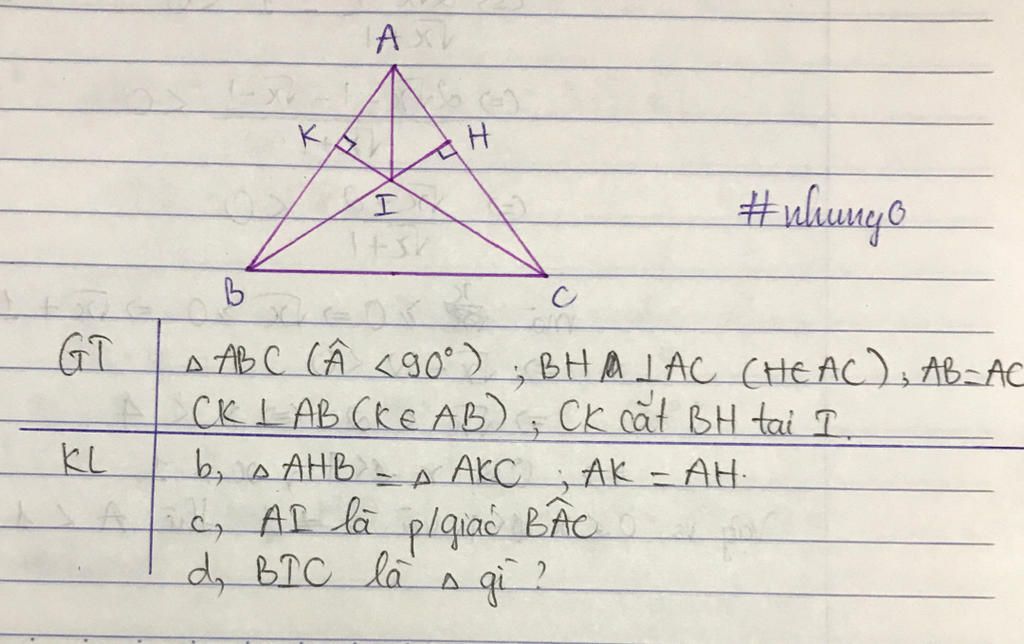 A
K
H
I
#nhung0
B
C
GT
△ ABC (Â < 90°) ; BH ⊥ AC (H ∈ AC) ; AB = AC
CK ⊥ AB (K ∈ AB) ; CK cắt BH tai I.
KL
b, △ AHB = △ AKC ; AK = AH.
c, AI là p/giác BÂC
d, BIC là △ gì ?